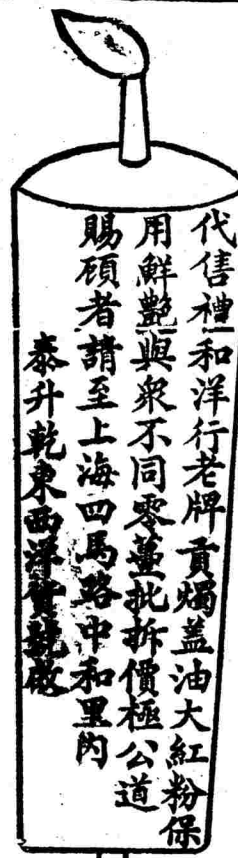 代售禮和洋行老牌貢燭蓋油大紅粉保
用鮮艷與衆不同零躉批拆價極公道
賜顧者請至上海四馬路中和里内
泰升乾東西洋貨號啟